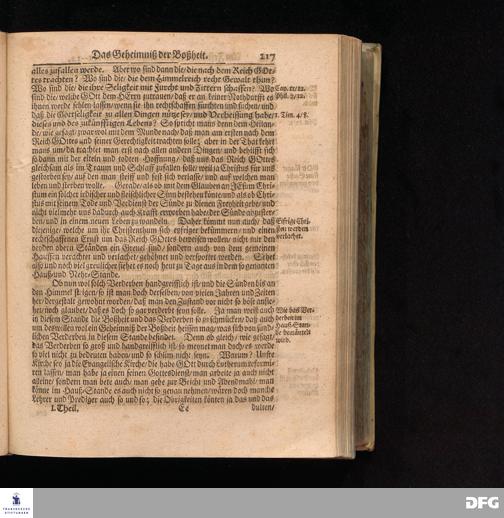 Das Geheimniß der Boßheit. 217
alles zufallen werde. Aber wo sind dann die/ die nach dem Reich GOt-
tes trachten? Wo sind die/ die dem Himmelreich recht Gewalt thun?
Wo sind die/ die ihre Seligkeit mit Furcht und Zittern schaffen? Wo
sind die/ welche GOtt dem HErrn zutrauen/ daß er an keiner Nothdurfft es
ihnen werde fehlen lassen/ wenn sie ihn rechtschaffen fürchten und suchen/ und
daß die Gottseligkeit zu allen Dingen nütze sey/ und Verheissung habe/
dieses und des zukünfftigen Lebens? So spricht mans denn dem Heilan-
de/ wie gesagt/ zwar wol mit dem Munde nach/ daß man am ersten nach dem
Reich GOttes und seiner Gerechtigkeit trachten solle; aber in der That kehrt
mans um/ da trachtet man erst nach allen andern Dingen/ und behilfft sich
so dann mit der eiteln und todten Hoffnung/ daß uns das Reich GOttes
gleichsam als im Traum und Schlaff zufallen solle/ weil ja Christus für uns
gestorben sey/ auf den man steiff und fest sich verlasse/ und auf welchen man
leben und sterben wolle. Gerade/ als ob mit dem Glauben an JEsum Chri-
stum ein solcher irdischer und fleischlicher Sinn bestehen könte/ und als ob Chri-
stus mit seinem Tode und Verdienst der Sünde zu dienen Freyheit gebe/ und
nicht vielmehr uns dadurch auch Krafft erworben habe/ der Sünde abzuster-
ben/ und in einem neuen Leben zu wandeln. Daher kömmt nun auch/ daß
diejenige/ welche um ihr Christenthum sich eyfriger bekümmern/ und einen
rechtschaffenen Ernst um das Reich GOttes beweisen wollen/ nicht nur den
beyden obern Ständen ein Greuel sind/ sondern auch von dem gemeinen
Hauffen verachtet und verlachet/ gehöhnet und verspottet werden. Sehet
also und noch viel greulicher siehet es noch heut zu Tage aus in dem so genanten
Hauß und Nehr-Stande.
Ob nun wol solch Verderben handgreifflich ist/ und die Sünden bis an
den Himmel steigen/ so ist man doch derselben/ von vielen Jahren und Zeiten
her/ dergestalt gewohnt worden/ daß man den Zustand vor nicht so böse anse-
he/ noch glaubet/ daß es doch so gar verderbt seyn solle. Ja man weiß auch
in diesem Stande die Boßheit und das Verderben so zu schmücken/ daß auch
um deswillen wol ein Geheimniß der Boßheit heissen mag/ was sich von sünd-
lichen Verderben in diesem Stande befindet. Denn ob gleich/ wie gesagt/
das Verderben so groß und handgreifflich ist/ so meynet man doch/ es werde
so viel nicht zu bedeuten haben/ und so schlim nicht seyn. Warum? Unsre
Kirche sey ja die Evangelische Kirche/ die habe GOtt durch Lutherum reformi-
ren lassen/ man habe ja einen feinen Gottesdienst/ man arbeite ja auch nicht
alleine/ sondern man bete auch/ man gehe zur Beicht und Abendmahl/ man
könne im Hauß-Stande es auch nicht so genau nehmen/ wären doch manche
Lehrer und Prediger auch so und so; die Obrigkeiten könten ja das und das
I. Theil. Ee dulten/
Cap. 11/12.
Phil. 2/12.
1. Tim. 4/8.
Eifrige Chri-
sten werden
verlachet.
Wie das Ver-
derben im
Hauß-Stan-
de bemäntelt
wird.
FRANCKESCHE
STIFTUNGEN
DFG